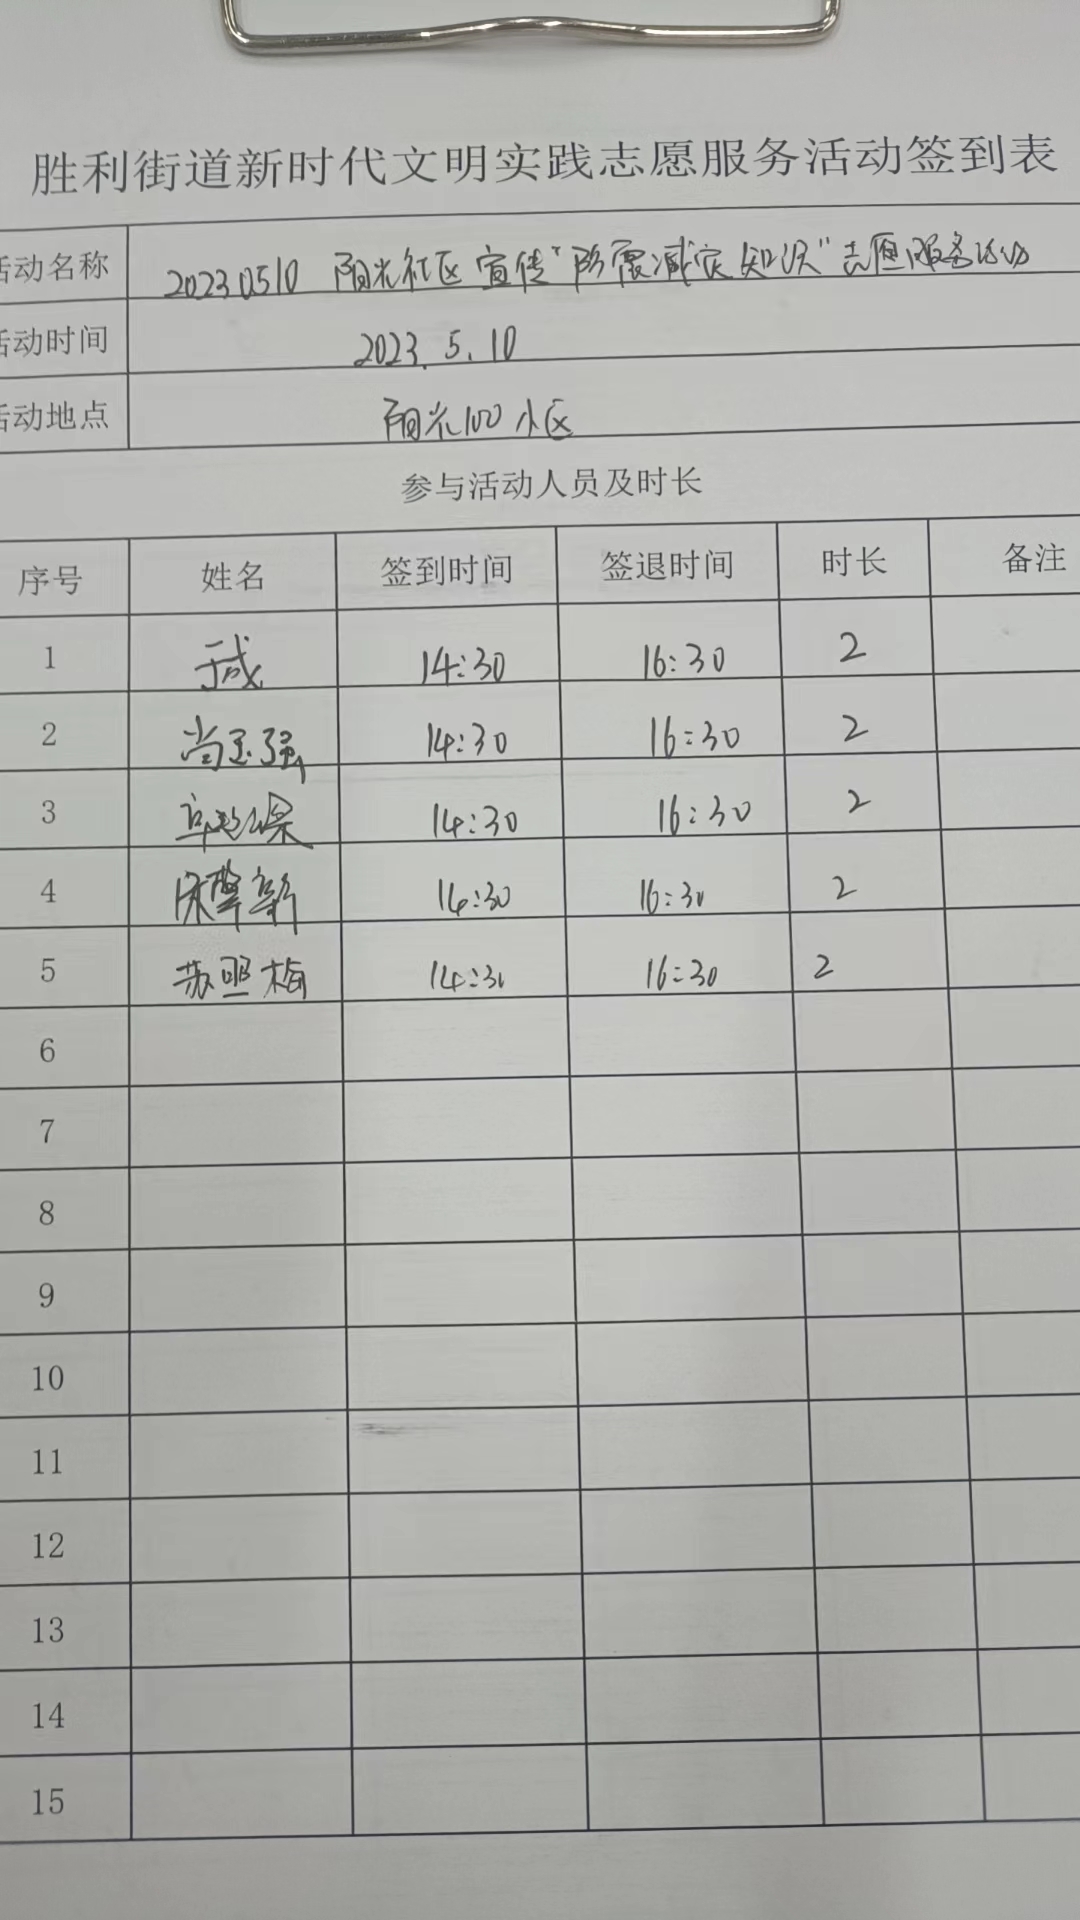 胜利街道新时代文明实践志愿服务活动签到表
活动名称 20230510 阳光社区宣传"防震减灾知识"志愿服务活动
活动时间 2023.5.10
活动地点 阳光100小区
参与活动人员及时长
序号 姓名 签到时间 签退时间 时长 备注
1 于成 14:30 16:30 2
2 尚玉强 14:30 16:30 2
3 14:30 16:30 2
4 14:30 16:30 2
5 苏照梅 14:30 16:30 2
6
7
8
9
10
11
12
13
14
15